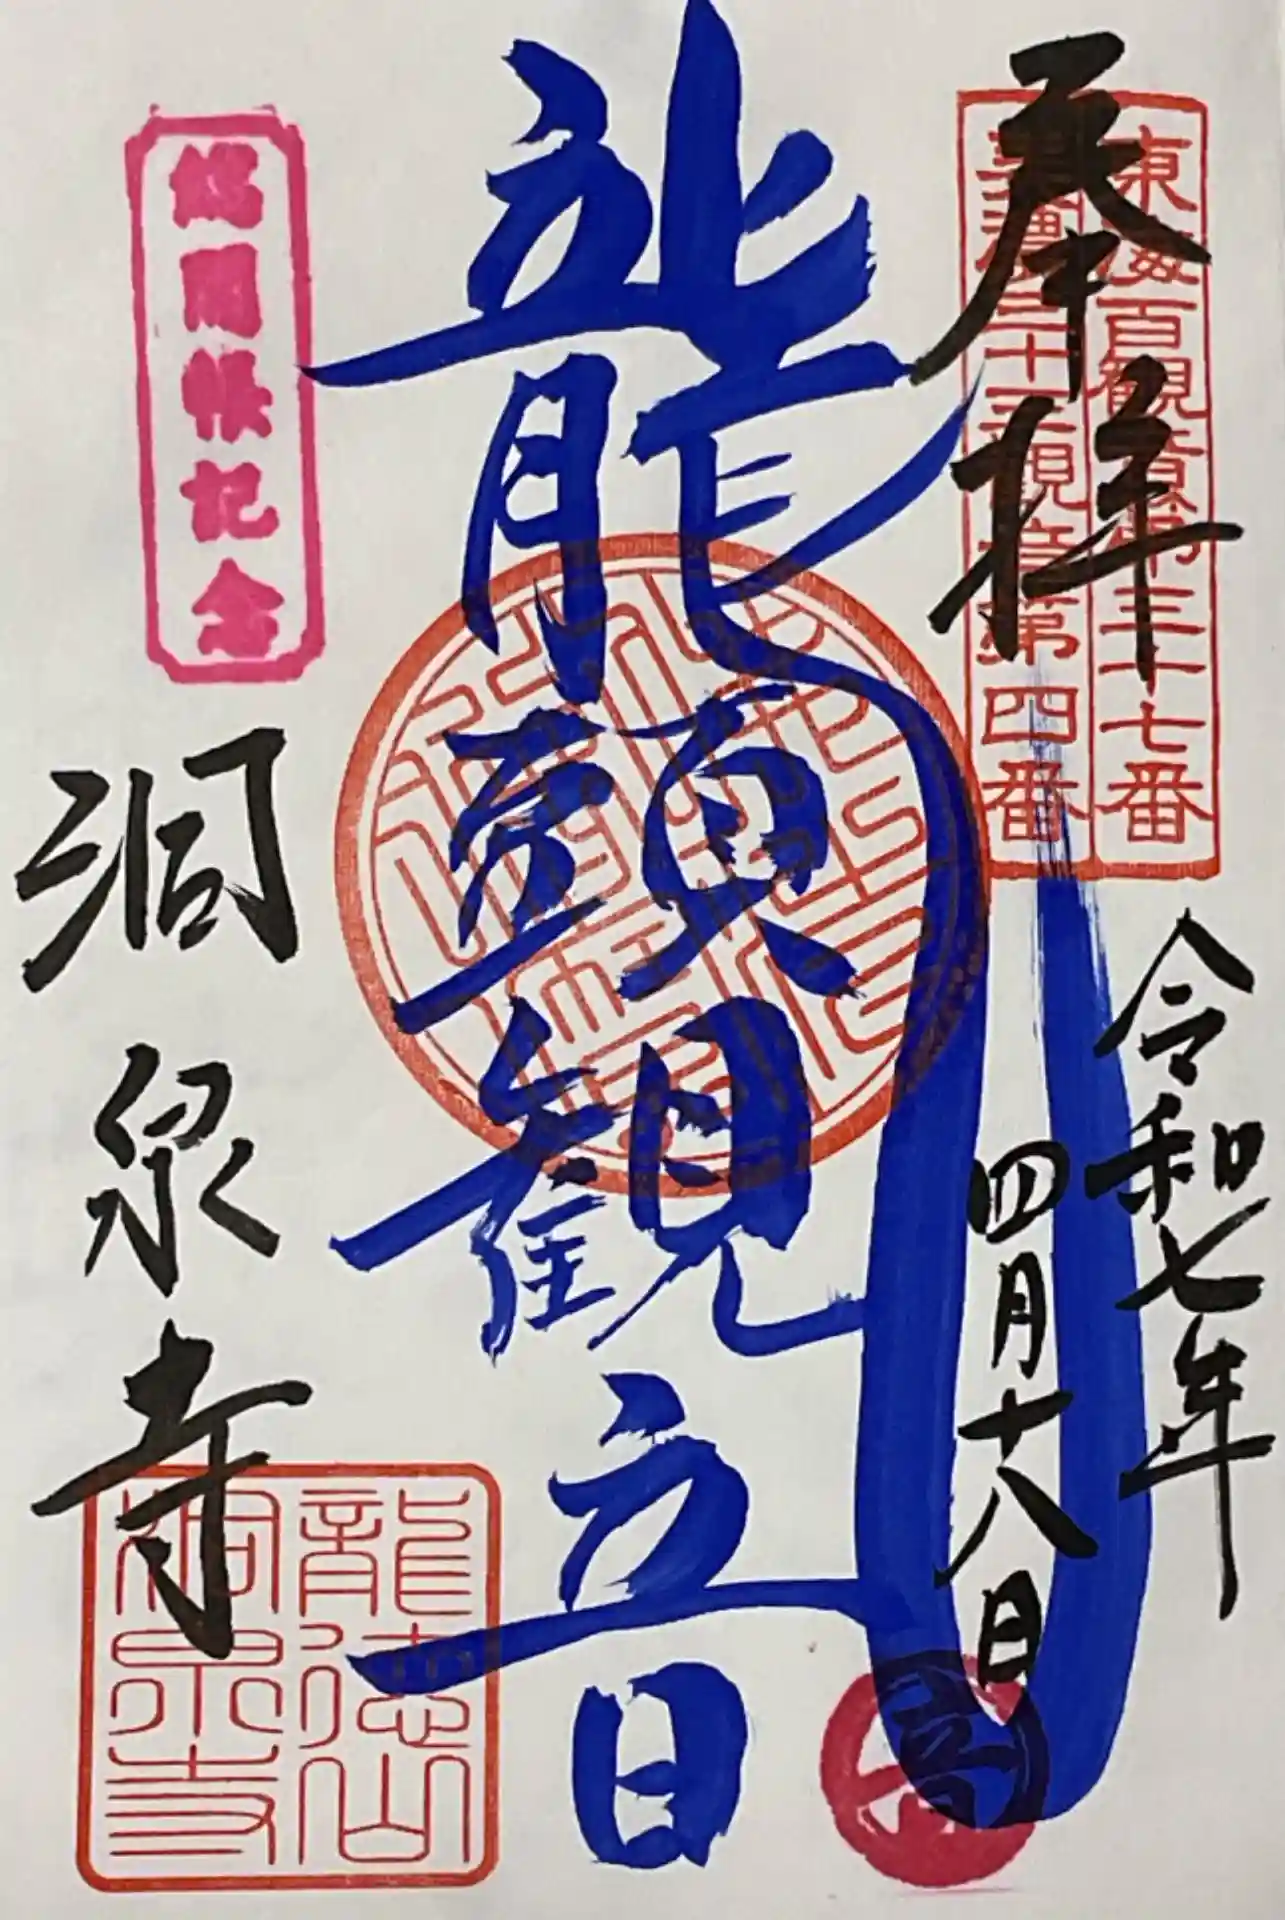 奉拝
東海百観音第三十七番
美濃三十三観音第四番
令和七年
四月十八日
龍頭観音
総開帳記念
洞泉寺
龍徳山
洞泉寺